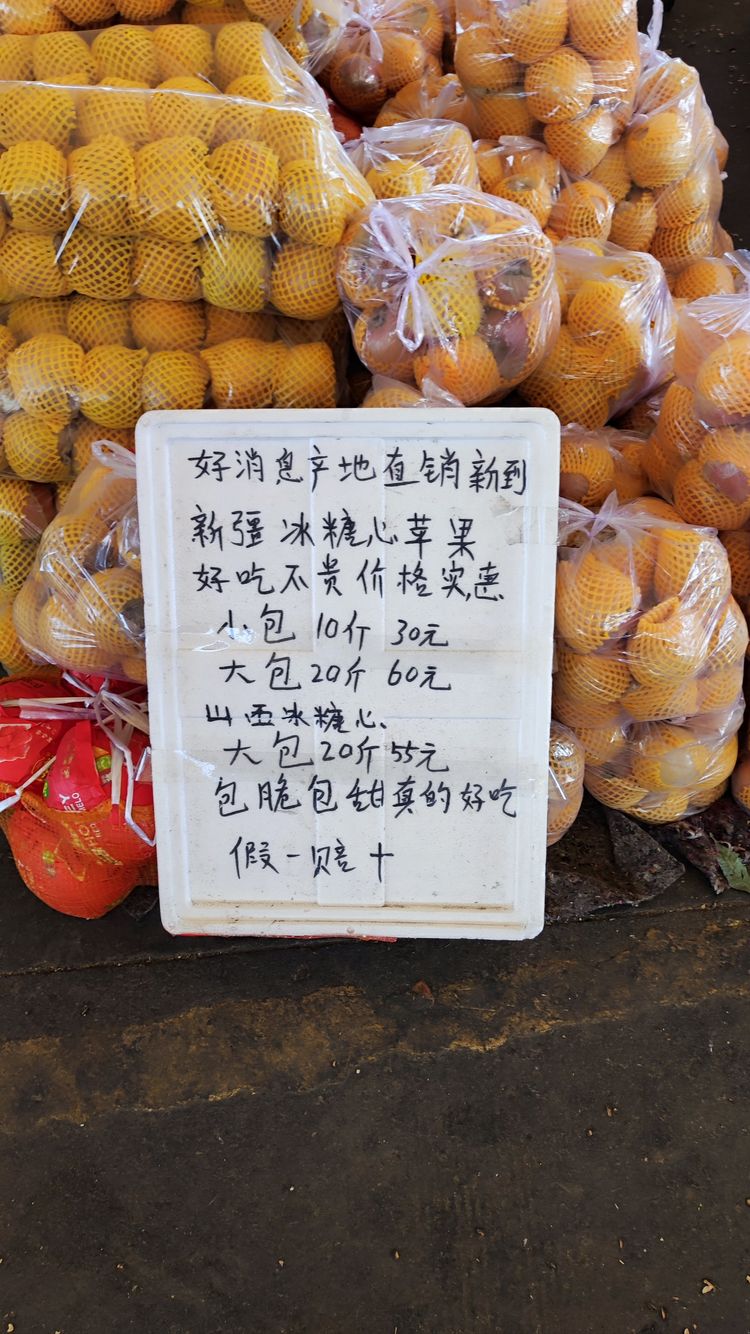 好消息产地直销新到
新疆冰糖心苹果
好吃不贵价格实惠
小包10斤30元
大包20斤60元
山西冰糖心、
大包20斤55元
包脆包甜真的好吃
假一赔十